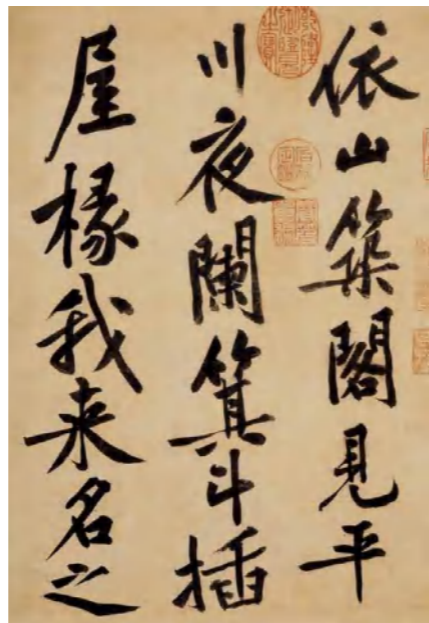 依山築閣見平
川夜闌箕斗插
屋椽我來名之